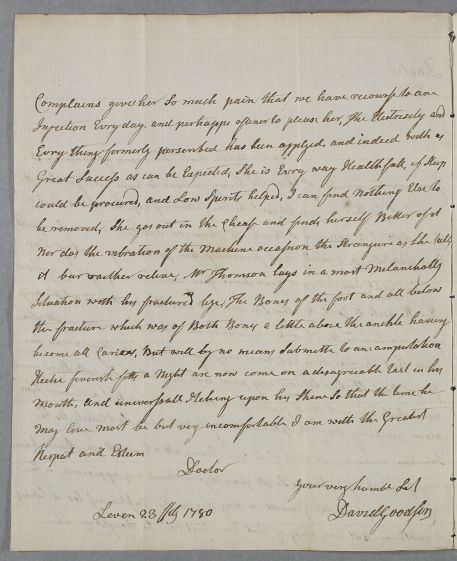 Complains give her So much pain that we have recourse to ane
Injection Evry day, and perhapps oftener to please her, The Electricity and
Evry thing formerly perscribed has been applyed, and indeed with as
Great Success as can be Expected, She is Evry way Healthfull, if Sleep
could be procured, and Low Spirits helped, I can find Nothing Else to
be removed, She goes out in the Chease and finds herself Better of it
Nor does the vibration of the Machine occasion the Strangure as She tells
it bar raither releive, Mr Thomson lays in a most Melancholly
Situation with his fractured legg, The Bones of the foot and all below
the fracture which was of Both Bones a little above the ankle haveing
become all Carias, But will by no means Submitte to an amputation
Hectic feverish fitts a Night are now come on a disagreeable tast in his
Mouth, and universall Itching upon his Skine So that the time he
may live most be but very incomfortable I am with the Greatest
Respat and Esteem
Doctor
Your very humble Set
Leven 23 1780
David Goodsir